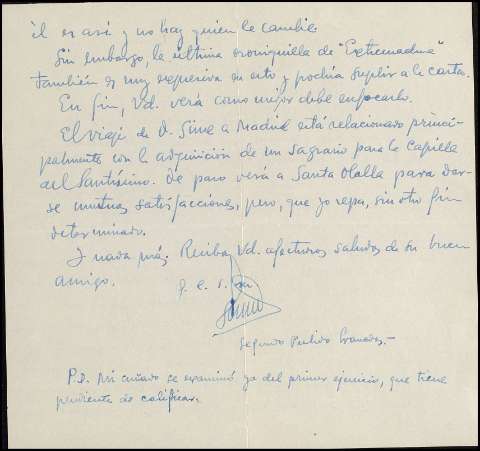 él es así y no hay quien le cambie.
Sin embargo, la última croniquilla de "Extremadura"
también es muy expresiva en esto y podría suplir a la carta.
En fin, Vd. verá como mejor debe enfocarlo.
El viaje de D. Sime a Madrid está relacionado princi-
palmente con la adquisición de un sagrario para la capilla
del Santísimo. De paso verá a Santa Olalla para dar-
se mutuas satisfacciones, pero, que yo sepa, sin otro fin
determinado.
Y nada más. Reciba Vd. afectuosos saludos de su buen
amigo.
Segundo Pulido Granados.-
P.D. Mi cuñado se examinó ya del primer ejercicio, que tiene
pendiente de calificar.